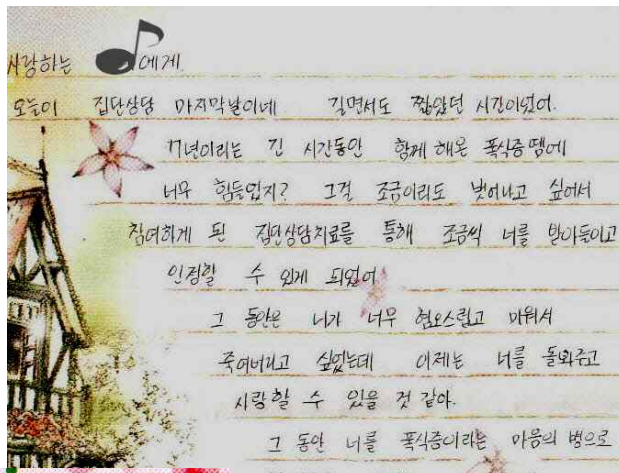 사랑하는 에게.
오늘이 집단상담 마지막날이네 길면서도 짧았던 시간이었어.
7년이라는 긴 시간동안 함께 해온 폭식증땜에
너무 힘들었지? 그걸 조금이라도 벗어나고 싶어서
참여하게 된 집단상담치료를 통해 조금씩 너를 받아들이고
인정할 수 있게 되었어
그 동안은 너가 너무 혐오스럽고 미워서
죽여버리고 싶었는데 이제는 너를 돌봐주고
사랑할 수 있을 것 같아.
그 동안 너를 폭식증이라는 마음의 병으로